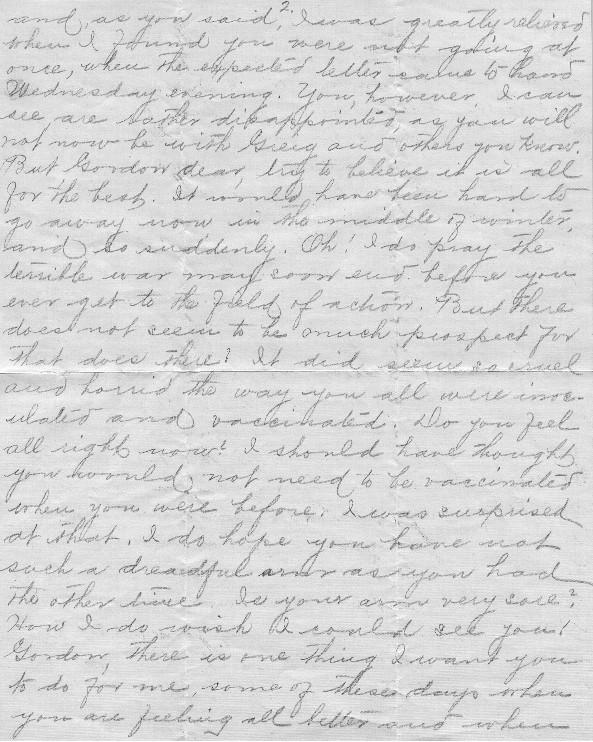 and, as you said, I was greatly relieved
when I found you were not going at
once, when the expected letter came to hand
Wednesday evening. You, however, I can
see, are rather disappointed, as you will
not now be with Greig and others you know.
But Gordon dear, try to believe it is all
for the best. It would have been hard to
go away now in the middle of winter,
and so suddenly. Oh! I do pray the
terrible war may soon end before you
ever get to the field of action. But there
does not seem to be much prospect for
that does there? It did seem so cruel
and horrid the way you all were inoc-
ulated and vaccinated. Do you feel
all right now? I should have thought
you would not need to be vaccinated
when you were before. I was surprised
at that. I do hope you have not
such a dreadful arm as you had
the other time. Is your arm very sore?
How I do wish I could see you!
Gordon, there is one thing I want you
to do for me, some of these days when
you are feeling all better and when